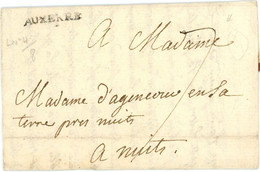 AUXERRE
A Madame
Madame d'agencour en sa
terre pres nuits
A nuits.